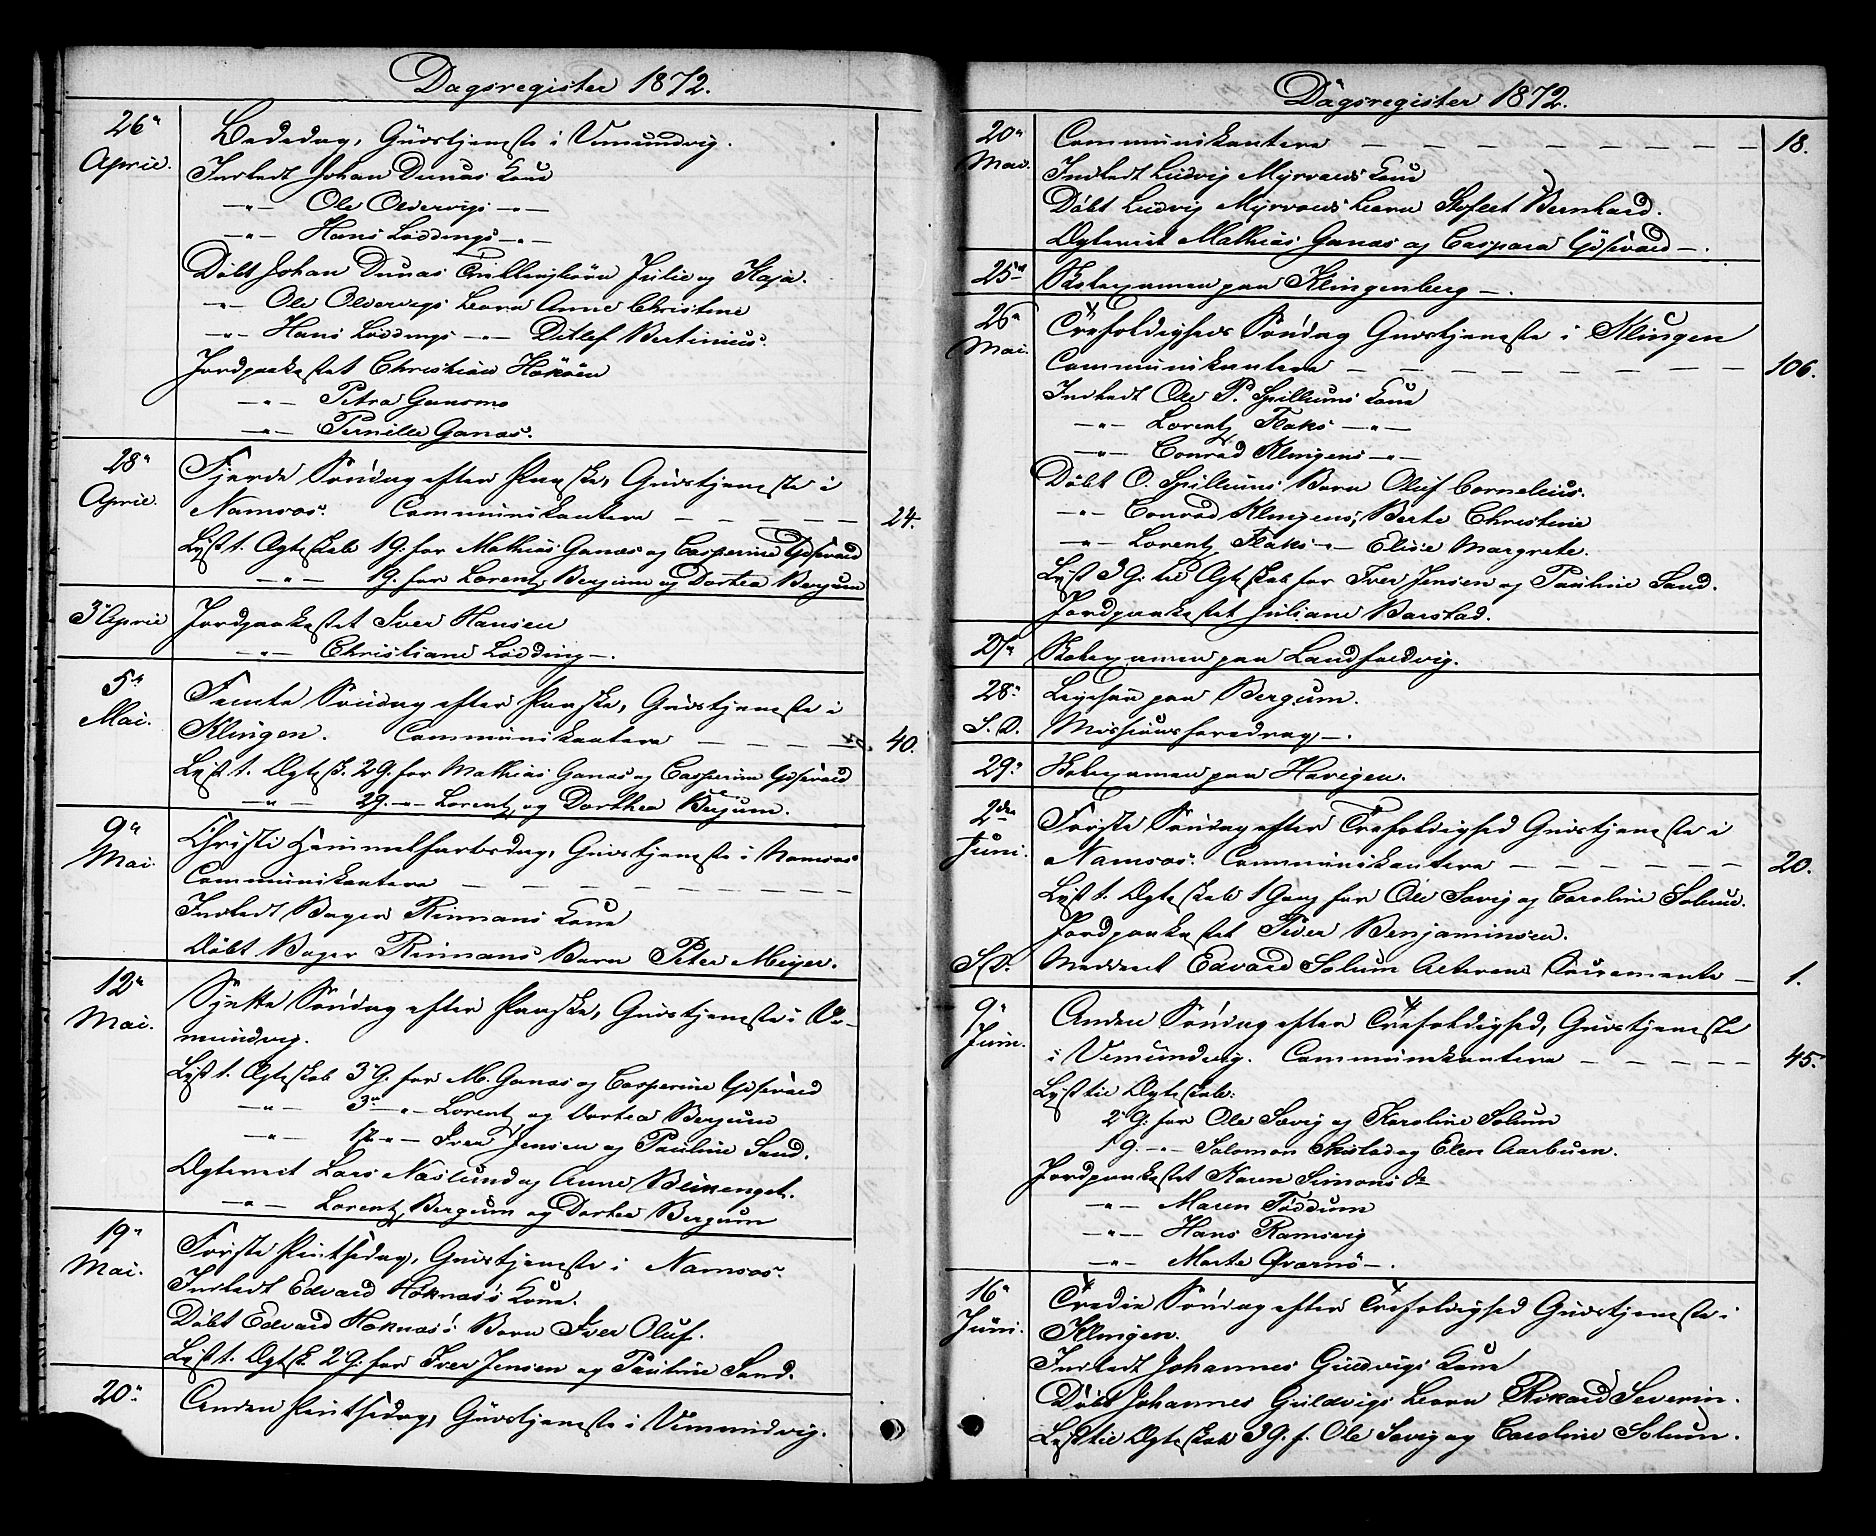 Dagsregister 1872.
26de April. Bededag, Gudstjeneste i Vemundvig.
Indledt Johan Dunas Kone
-"- Ole Oldervigs -"-
-"- Hans Løddings -"-
Døbt Johan Dunas Tvillingbørn Julie og Kaja.
-"- Ole Oldervigs Barn Anne Christine
-"- Hans Løddings -"- Ditlef Bertinius.
Jordpaakastet Christian
-"- Petra Gansmo
-"- Pernille Ganas.
28de April. Fjerde Søndag efter Paaske, Gudstjeneste i
Namsos. Communikantere — — — — 24.
Lyst t. Ægteskab 1 G. for Mathias Ganas og Casperine
-"- 1 G. for Lorentz Bergum og Dortea Bergum
3 April Jordpaakastet Iver Hansen
-"- Christiane Lødding —.
5te Mai. Femte Søndag efter Paaske, Gudstjeneste i
Klingen. Communikantere — — — — 40.
Lyst t. Ægtesk. 2 G. for Mathias Ganas og Casperine
-"- 2 G. -"- Lorentz og Dorthea Bergum.
9de Mai. Christi Himmelfartsdag, Gudstjeneste i Namsos
Communikantere — — — — — — — —
Indledt Bager Rinnans Kone
Døbt Bager Rinnans Barn Peter Meyer.
12te Mai. Sjette Søndag efter Paaske, Gudstjeneste i Ve-
mundvig.
Lyst t. Ægteskab 3 G. for M. Ganas og Casperine
-"- 3 -"- Lorentz og Dortea Bergum
-"- 1 -"- Iver Jensen og Pauline Sand.
Ægteviet Lars Naslund og Anne
-"- Lorentz Bergum og Dortea Bergum
19de Mai. Første Pintsedag, Gudstjeneste i Namsos.
Indledt Edvard Høknas's Kone.
Døbt Edvard Høknas's Barn Iver Oluf.
Lyst t. Ægtsk. 2 G. for Iver Jensen og Pauline Sand.
20de Anden Pintsedag, Gudstjeneste i Vemundvig.
Dagsregister 1872.
20de Mai. Communikantere — — — — — — — — 18.
Indledt Ludvig Myrvolds Kone
Døbt Ludvig Myrvolds Barn Bernhard.
Ægteviet Mathias Ganas og Caspara —.
25de Skolexamen paa Klingenberg —.
26de Mai. Trefoldigheds Søndag Gudstjeneste i Klingen
Communikantere — — — — — — — — 106.
Indledt Ole P. Spillums Kone
-"- Lorentz Flaks -"-
-"- Conrad Klingens -"-
Døbt O. Spillums Barn Oluf Cornelius.
-"- Conrad Klingens, Berte Christine
-"- Lorentz Flaks -"- Elise Margrete.
Lyst 3 G. til Ægteskab for Iver Jensen og Pauline Sand.
Jordpaakastet Juliane Barstad.
27de Skolexamen paa Landfaldvig.
28de paa Bergum.
S. D. Missionsforedrag —.
29de Skolexamen paa Havigen.
2den Juni. Første Søndag efter Trefoldighed Gudstjeneste i
Namsos. Communikantere — — — — — — 20.
Lyst t. Ægteskab 1 Gang for Ole Savig og Caroline Solum.
Jordpaakastet Peder Benjaminsen.
S. D. Meddeelt Edvard Solum Alterens Sacramente — 1.
9de Juni. Anden Søndag efter Trefoldighed, Gudstjeneste
i Vemundvig. Communikantere — — — — — 45.
Lyst til Ægteskab:
2 G. for Ole Savig og Karoline Solum
1 G. -"- Salomon og Elen Aarbuen.
Jordpaakastet Karen Simons Dr
-"- Maren Føddum
-"- Hans Ramsvig
-"- Marte Qvarnø —.
16de Juni. Tredie Søndag efter Trefoldighed Gudstjeneste i
Klingen.
Indledt Johannes Guldvigs Kone
Døbt Johannes Guldvigs Barn Rikard Severin.
Lyst til Ægteskab 3 G. f. Ole Savig og Caroline Solum.